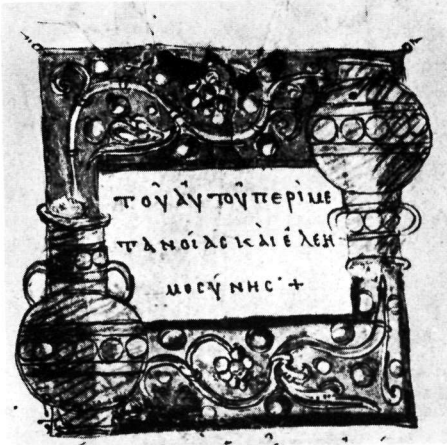 τοῦ ἀυτοῦ περὶ με
τανοίας κ̀αι ἐλεη
μοσύνης· +